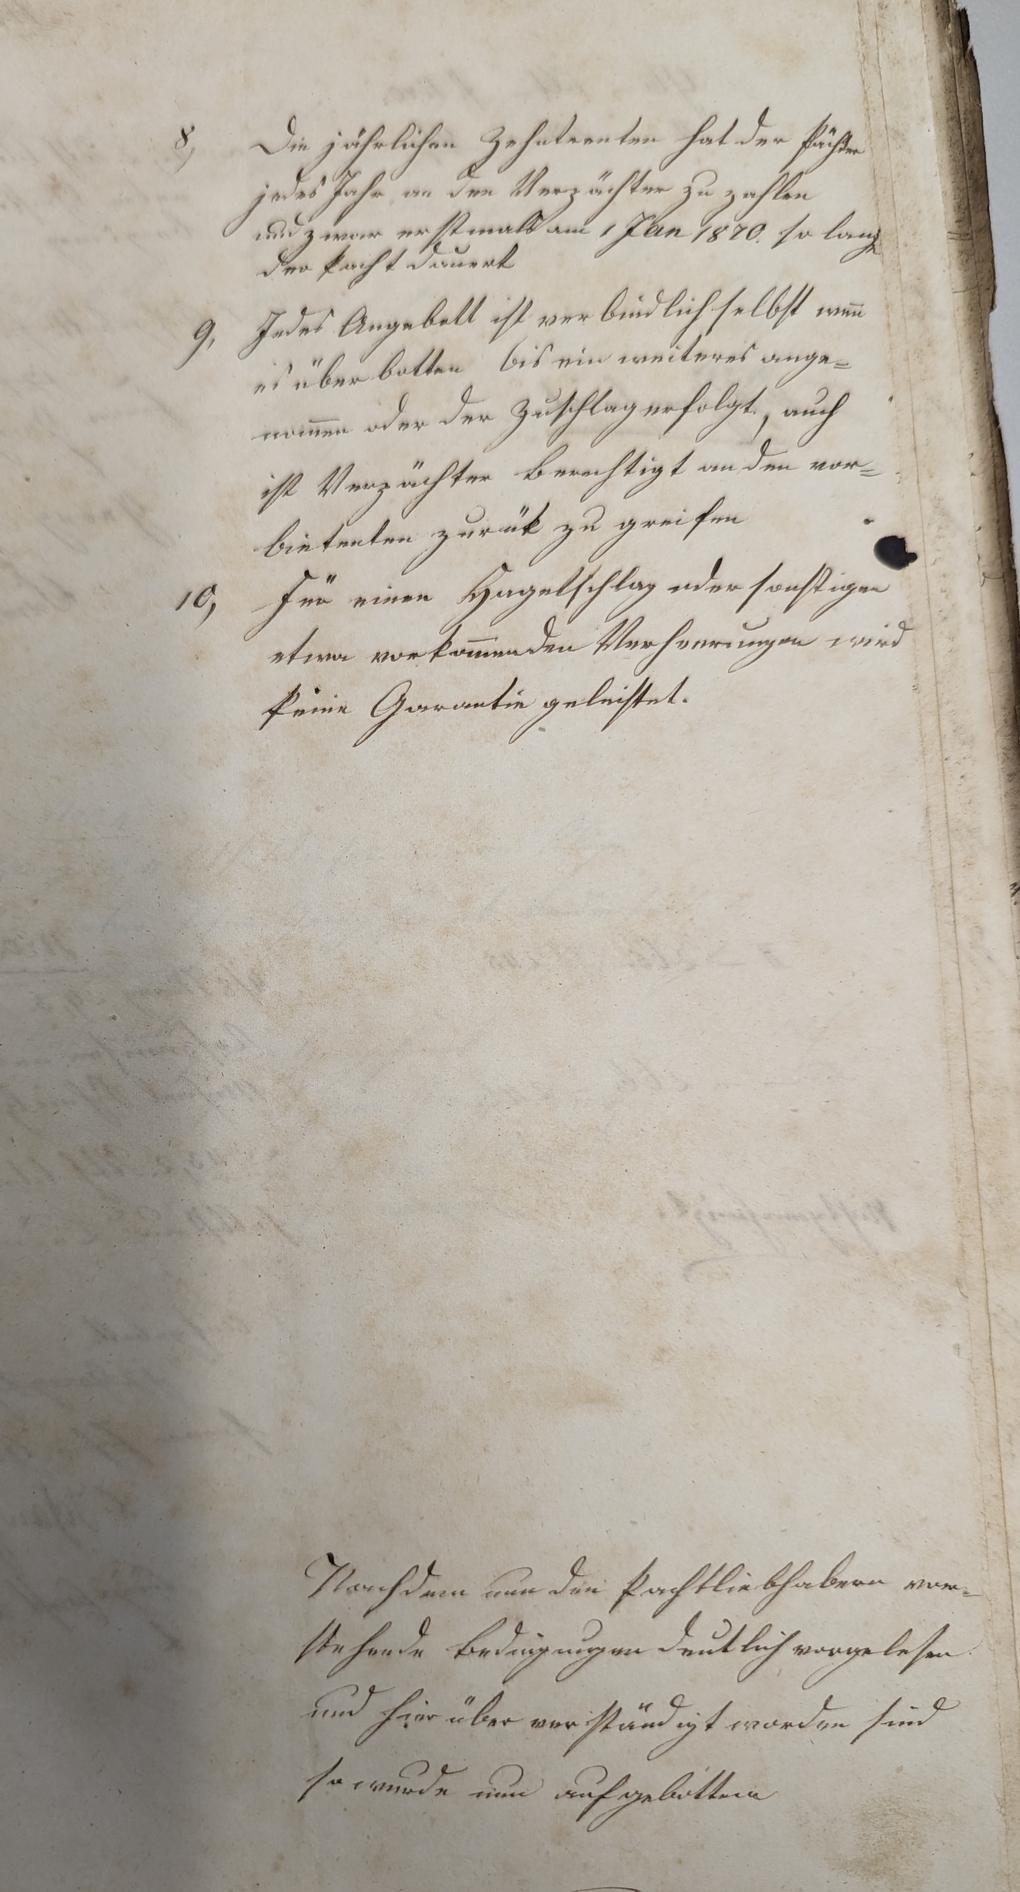 8, Die jährlichen Zehntrenten hat der Pächter
jedes Jahr an den Verpächter zu zahlen
und zwar erstmals am 1 Jan 1870. so lang
der Pacht dauert
9, Jedes Angebott ist verbindlich selbst wenn
es überbotten bis ein weiteres ange=
nom̅en oder der Zuschlag erfolgt, auch
ist Verpächter berechtigt an den vor=
bietenten zurük zu greifen
10, Für einen Hagelschlag oder sonstigen
etwa vorkom̅enden Verheerungen wird
keine Garantie geleistet.
Nachdem nun den Pachtliebhabern vor=
stehende Bedingungen deutlich vorgelesen
und hierüber verständigt worden sind
so wurde nun aufgebotten